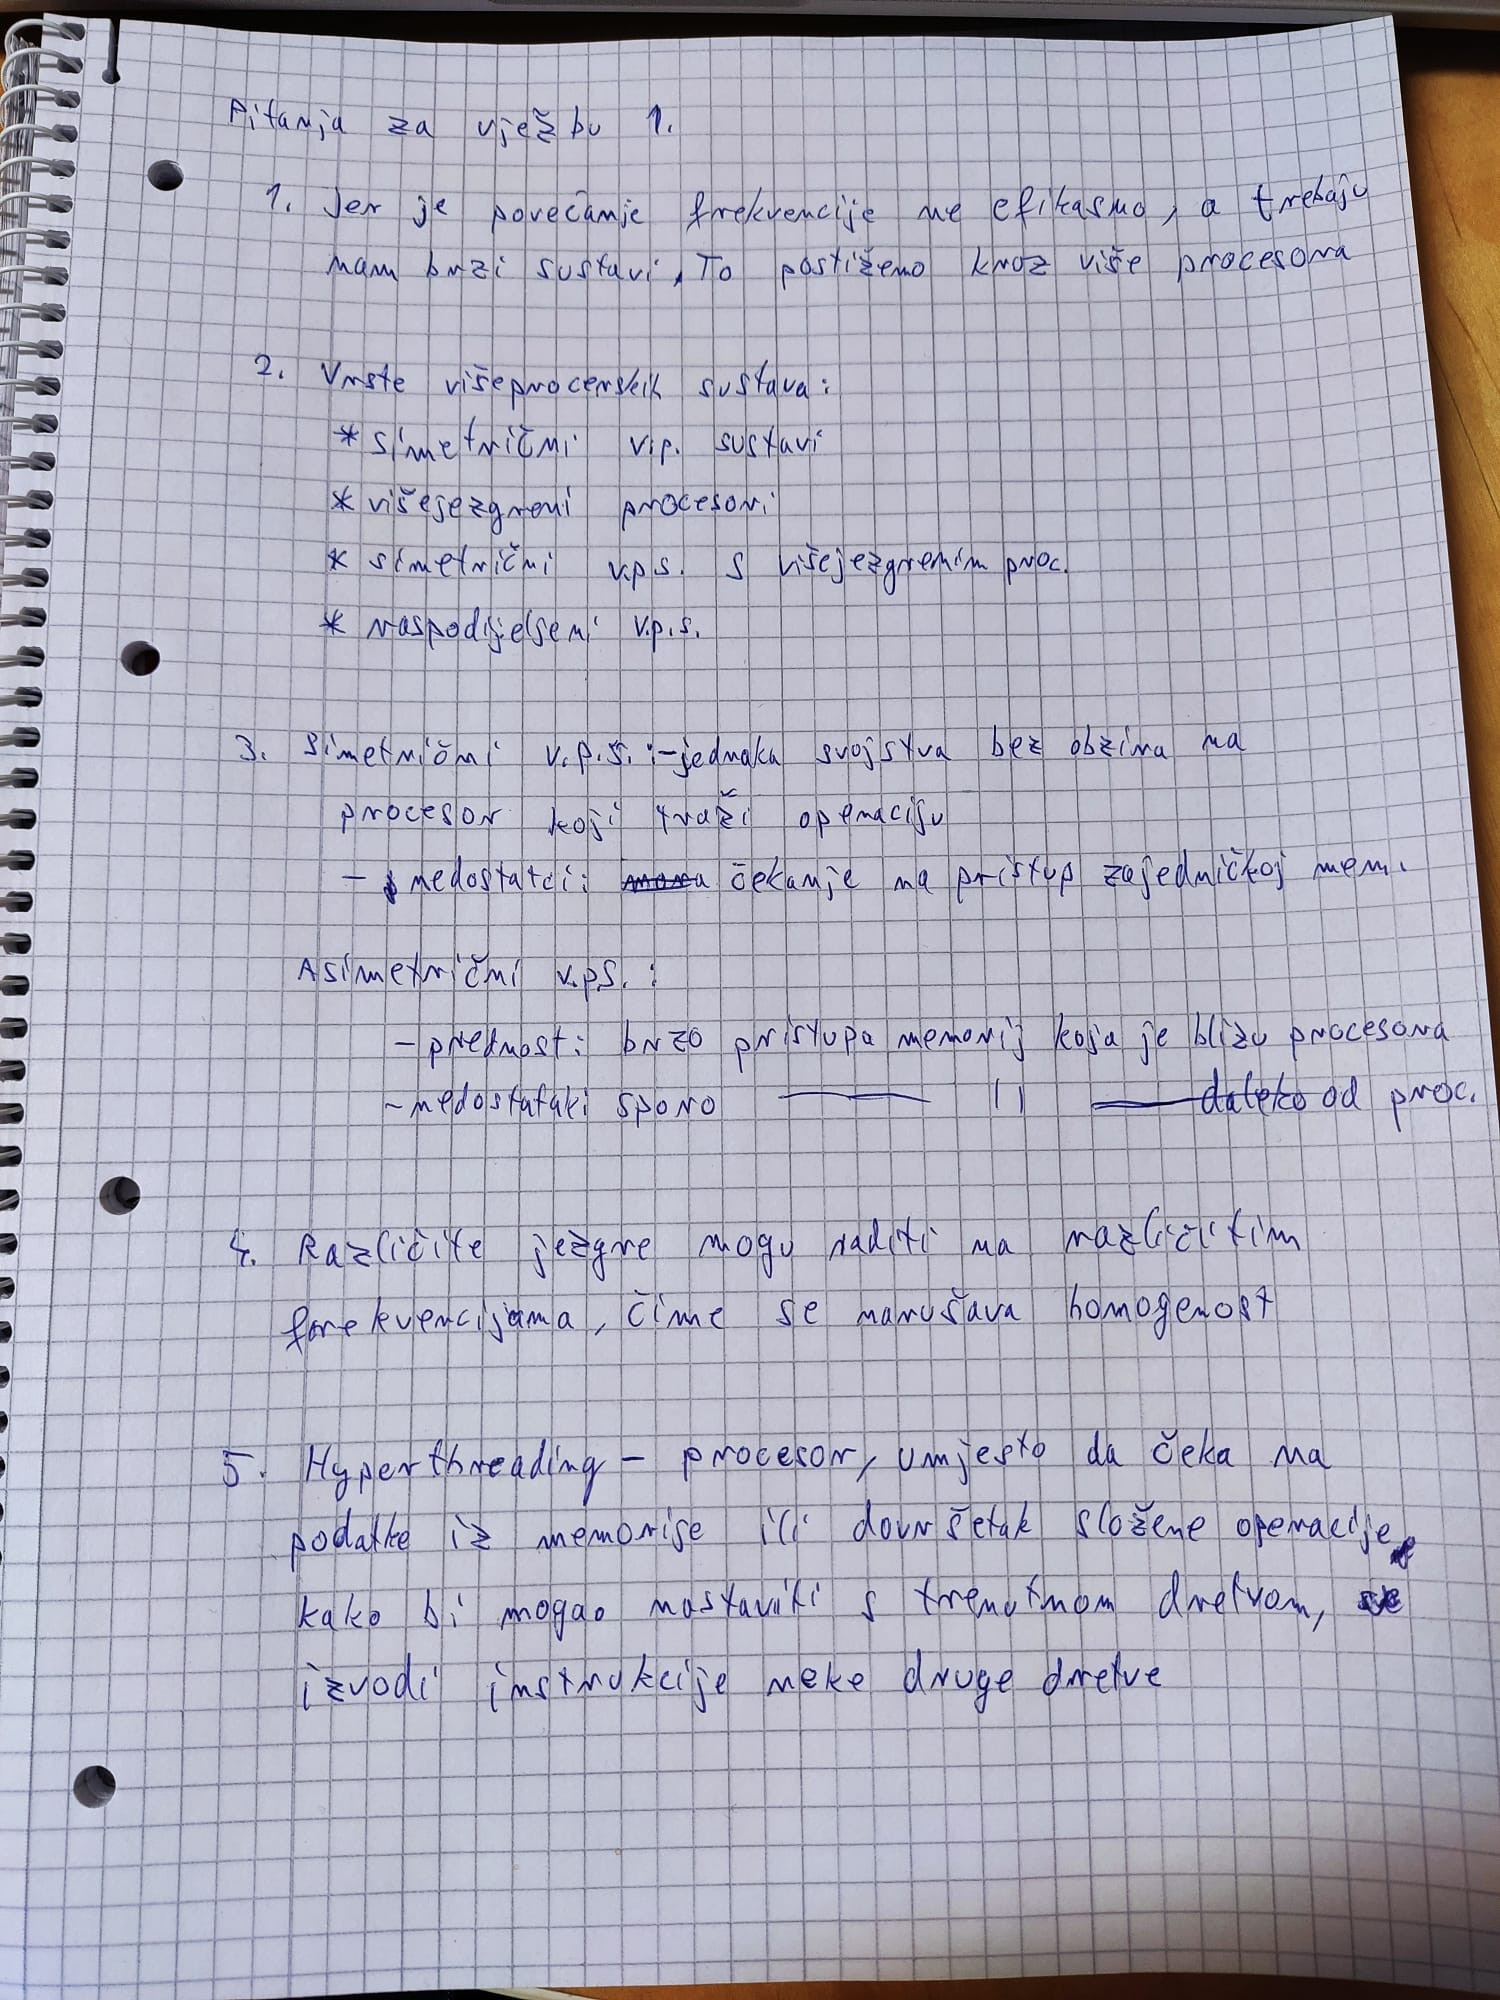 Pitanja za vježbu 1.
1. Jer je povečanje frekvencije ne efikasno, a trebaju
nam brzi sustavi, To postižemo kroz više procesora
2. Vrste višeprocerskih sustava:
* simetrični v.p. sustavi
* višejezgreni procesori
* simetrični v.p.s. s višejezgrenim proc.
* raspodijeljeni v.p.s.
3. Simetrični v.p.s. :- jednaka svojstva bez obzira na
procesor koji traži operaciju
- nedostatci: čekanje na pristup zajedničkoj mem.
Asimetrični v.p.s. :
- prednost: brzo pristupa memorij koja je blizu procesora
- nedostatak: sporo —— 11 —— daleko od proc.
4. Različite jezgre mogu raditi na različitim
frekvencijama, čime se narušava homogenost
5. Hyperthreading - procesor, umjesto da čeka na
podatke iz memorije ili dovršetak složene operacije
kako bi mogao nastaviti s trenutnom dretvom,
izvodi instrukcije neke druge dretve